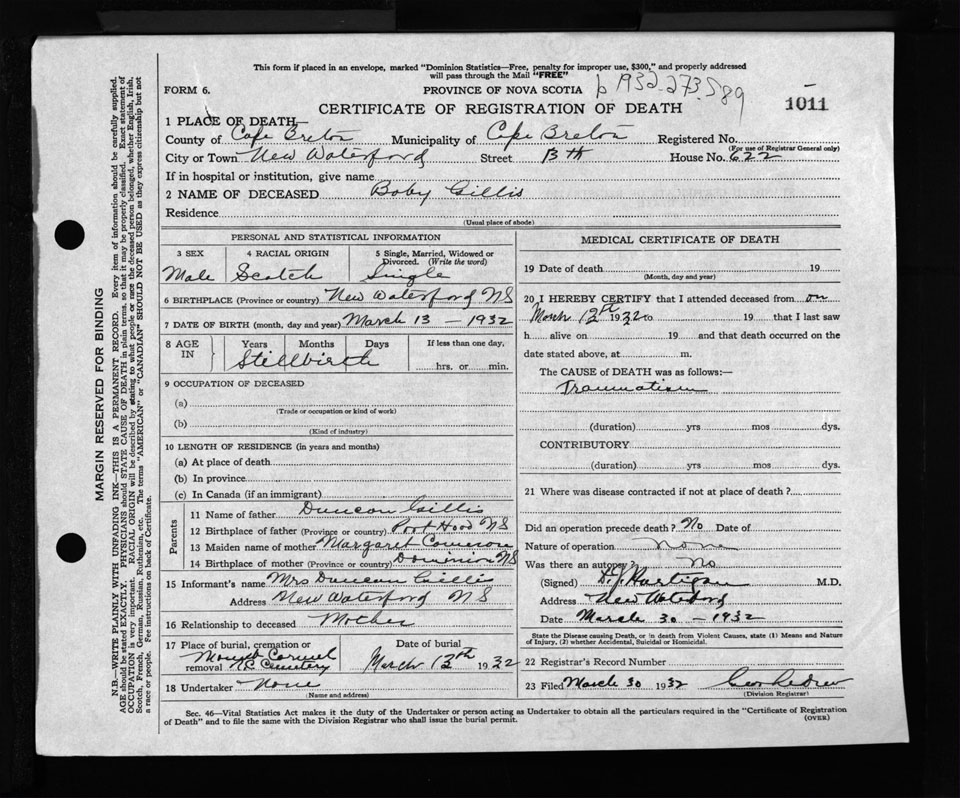 This form if placed in an envelope, marked "Dominion Statistics—Free, penalty for improper use, $300," and properly addressed
will pass through the Mail "FREE"
FORM 6.
PROVINCE OF NOVA SCOTIA
b 1932-273589
1011
CERTIFICATE OF REGISTRATION OF DEATH
1 PLACE OF DEATH
County of Cape Breton Municipality of Cape Breton Registered No.
(For use of Registrar General only)
City or Town New Waterford Street 8th House No. 622
If in hospital or institution, give name
2 NAME OF DECEASED Baby Gillis
Residence
(Usual place of abode)
PERSONAL AND STATISTICAL INFORMATION
3 SEX 4 RACIAL ORIGIN 5 Single, Married, Widowed or
Divorced. (Write the word)
Male Scotch Single
6 BIRTHPLACE (Province or country) New Waterford NS
7 DATE OF BIRTH (month, day and year) March 13 - 1932
8 AGE IN Years Months Days If less than one day,
Stillbirth hrs. or min.
9 OCCUPATION OF DECEASED
(a)
(Trade or occupation or kind of work)
(b)
(Kind of industry)
10 LENGTH OF RESIDENCE (in years and months)
(a) At place of death
(b) In province
(c) In Canada (if an immigrant)
Parents
11 Name of father Duncan Gillis
12 Birthplace of father (Province or country) Port Hood NS
13 Maiden name of mother Margaret Cameron
14 Birthplace of mother (Province or country) Dominion NS
15 Informant's name Mrs Duncan Gillis
Address New Waterford NS
16 Relationship to deceased Mother
17 Place of burial, cremation or Date of burial
removal Mount Carmel R.C. Cemetery March 12th 1932
18 Undertaker None
(Name and address)
MEDICAL CERTIFICATE OF DEATH
19 Date of death 19
(Month, day and year)
20 I HEREBY CERTIFY that I attended deceased from on
March 12th 1932 to 19 that I last saw
h alive on 19 and that death occurred on the
date stated above, at m.
The CAUSE of DEATH was as follows:—
Traumatism
(duration) yrs mos dys.
CONTRIBUTORY
(duration) yrs mos dys.
21 Where was disease contracted if not at place of death?
Did an operation precede death? No Date of
Nature of operation none
Was there an autopsy? No
(Signed) D.J. Hartigan M.D.
Address New Waterford
Date March 30 - 1932
State the Disease causing Death, or in death from Violent Causes, state (1) Means and Nature
of Injury, (2) whether Accidental, Suicidal or Homicidal.
22 Registrar's Record Number
23 Filed March 30 1932
(Division Registrar)
Sec. 46—Vital Statistics Act makes it the duty of the Undertaker or person acting as Undertaker to obtain all the particulars required in the "Certificate of Registration
of Death" and to file the same with the Division Registrar who shall issue the burial permit.
(OVER)
MARGIN RESERVED FOR BINDING
N.B.—WRITE PLAINLY WITH UNFADING INK—THIS IS A PERMANENT RECORD. Every item of information should be carefully supplied.
AGE should be stated EXACTLY. PHYSICIANS should STATE CAUSE OF DEATH in plain terms, so that it may be properly classified. Exact statement of
OCCUPATION is very important. RACIAL ORIGIN will be described by stating to what people or race the deceased person belonged, whether English, Irish,
Scotch, French, German, Russian, Ruthenian, etc. The terms "AMERICAN" or "CANADIAN" SHOULD NOT BE USED as they express citizenship but not
a race or people. Fee instructions on back of Certificate.